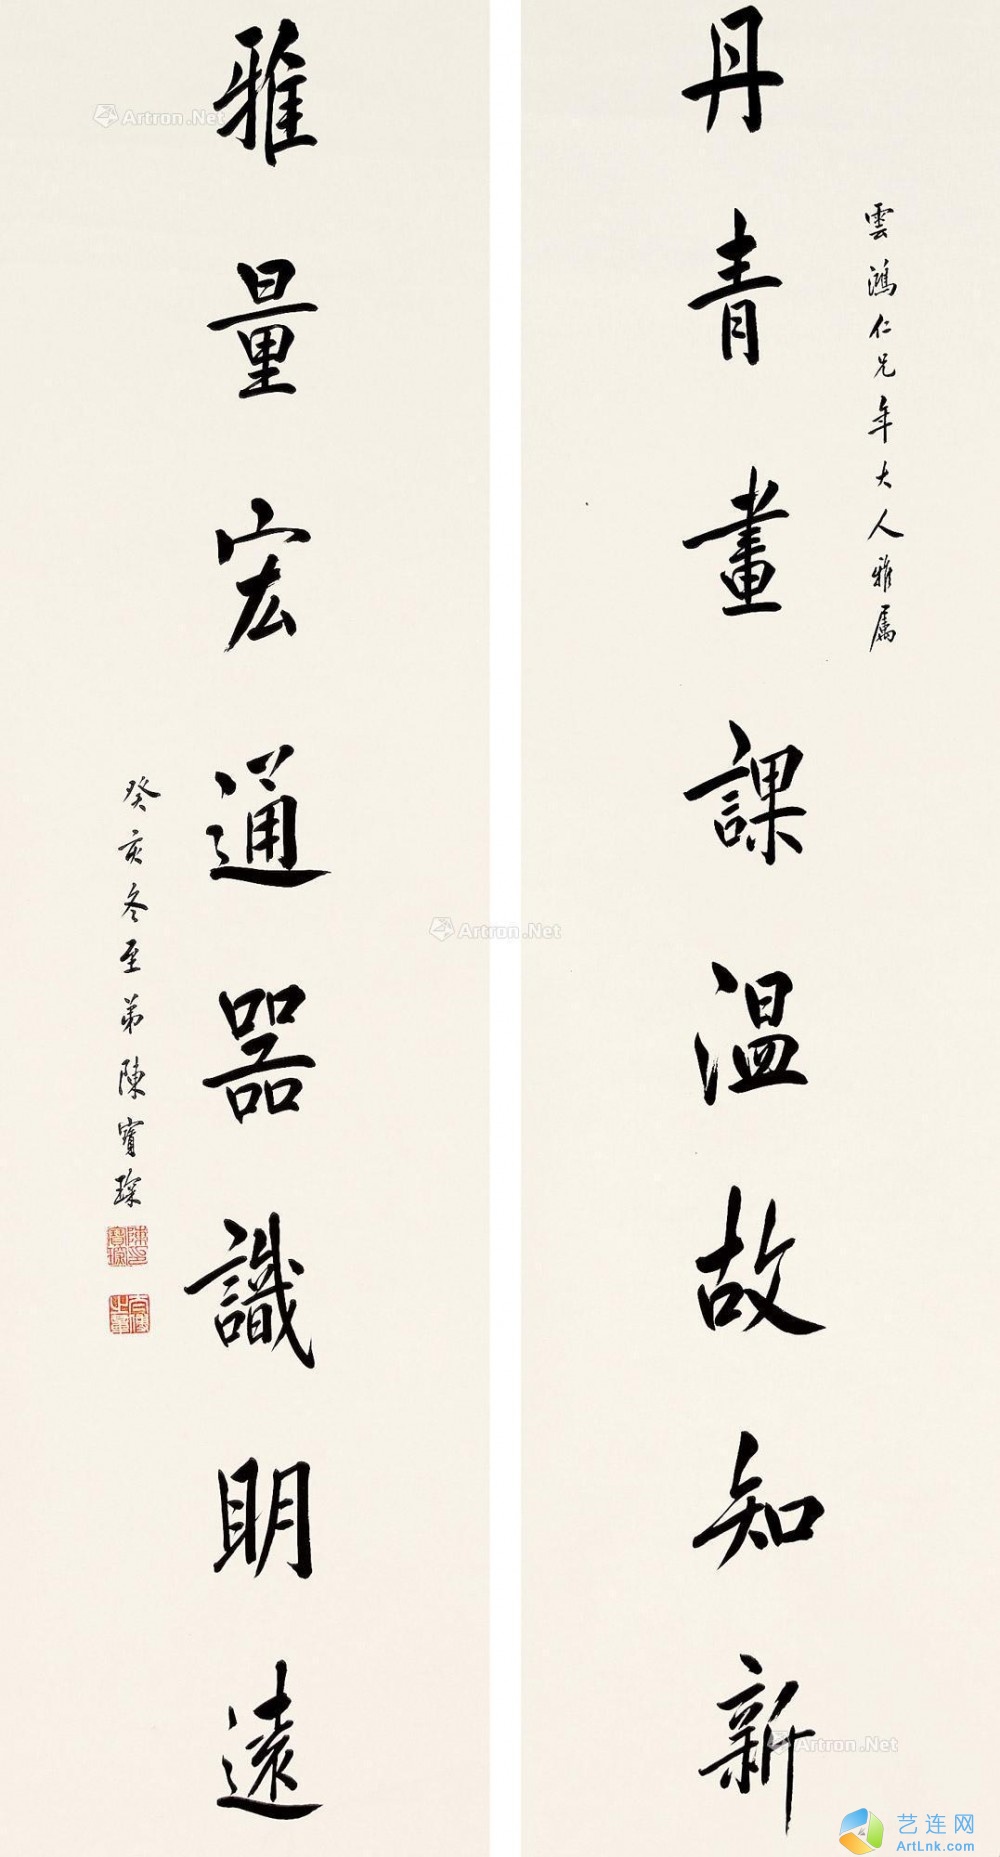 雲鴻仁兄年大人雅屬
丹青畫課温故知新
雅量宏通器識明遠
癸亥冬至弟陳寶琛
陳寶琛印
Artron.Net
Artron.Net
Artron.Net
艺连网
ArtLnk.com